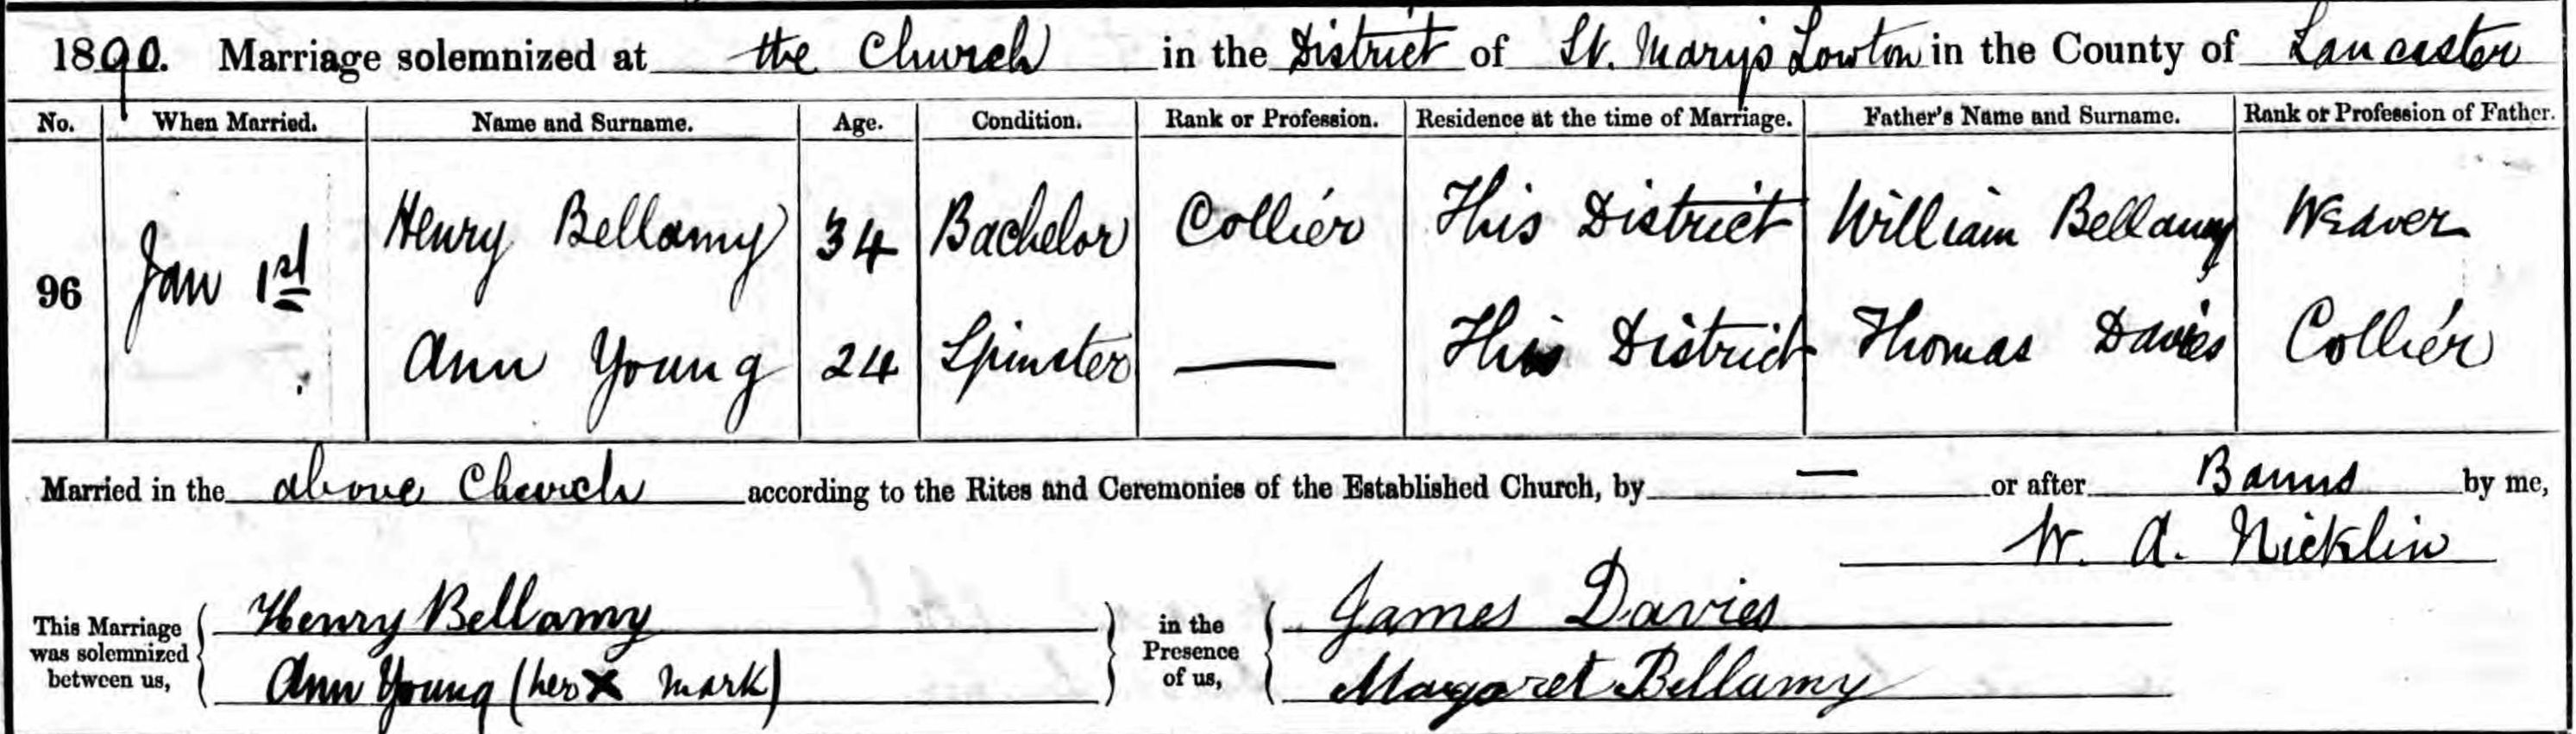 1890. Marriage solemnized at the Church in the District of St. Mary's Lowton in the County of Lancaster
No. When Married. Name and Surname. Age. Condition. Rank or Profession. Residence at the time of Marriage. Father's Name and Surname. Rank or Profession of Father.
Henry Bellamy 34 Bachelor Collier This District William Bellamy Weaver
96 Jan 1st
Ann Young 24 Spinster — This District Thomas Davies Collier
Married in the above Church according to the Rites and Ceremonies of the Established Church, by — or after Banns by me,
W. A. Nicklin
This Marriage was solemnized between us, Henry Bellamy in the Presence of us, James Davies
Ann Young (her X mark) Margaret Bellamy